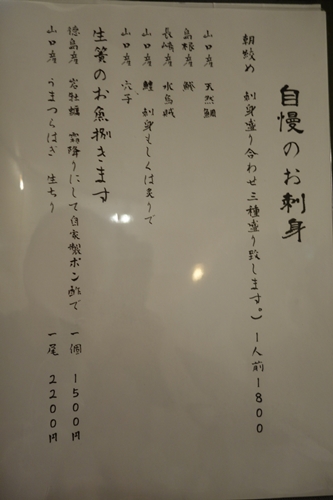 自慢のお刺身
朝絞め 刺身盛り合わせ三種盛り致します。） 1人前1800
山口産 天然鯛
島根産 鯵
長崎産 水烏賊
山口産 鱧 刺身もしくは炙りで
山口産 穴子
生簀のお魚捌きます
徳島産 岩牡蠣 霜降りにして自家製ポン酢で 一個 1500円
山口産 うまつらはぎ 生ちり 一尾 2200円